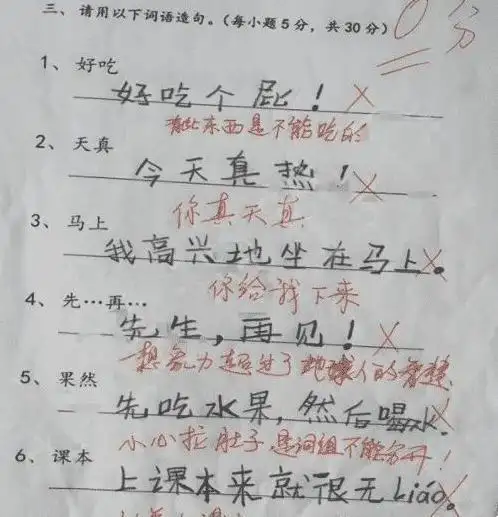 三、请用以下词语造句。(每小题5分,共30分)
0分
1、好吃
好吃个屁!
有些东西是不能吃的
2、天真
今天真热!
你真天真
3、马上
我高兴地坐在马上。
你给我下来
4、先…再…
先生,再见!
想象力超过了地球人的智慧
5、果然
先吃水果,然后喝水。
小心拉肚子 是词组不能分开!
6、课本
上课本来就很无Liáo。